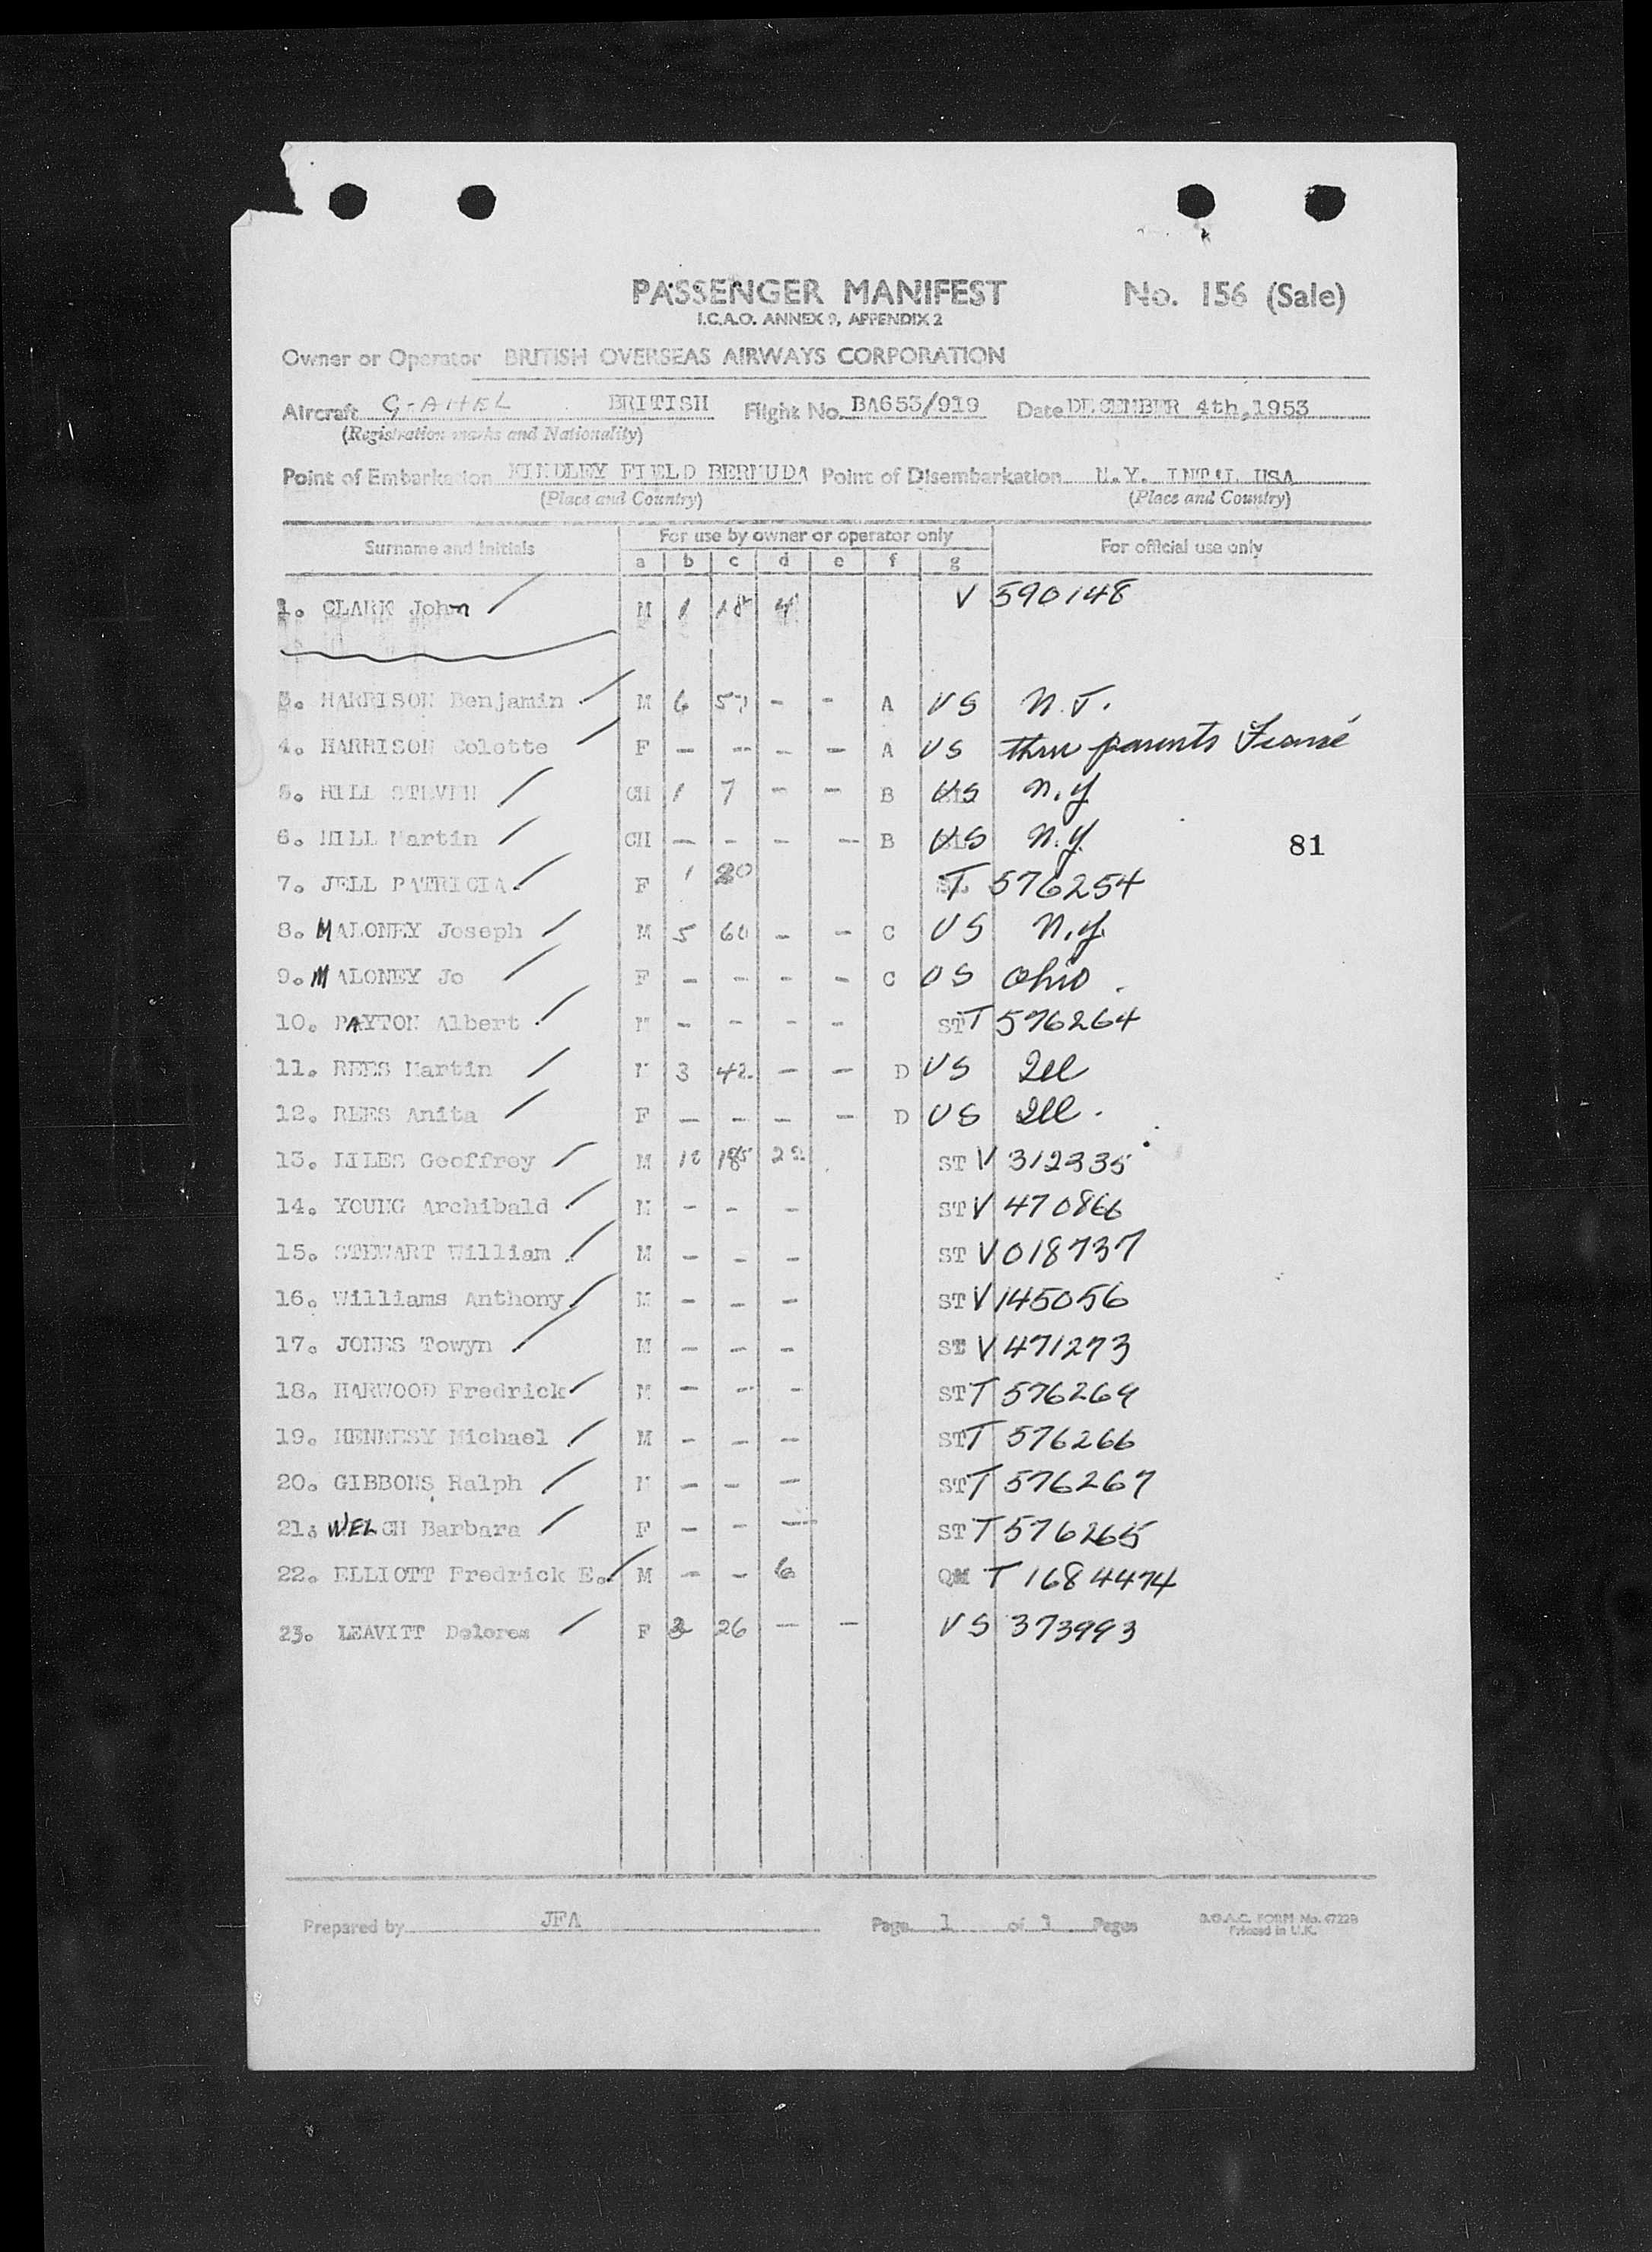 PASSENGER MANIFEST No. 156 (Sale)
I.C.A.O. ANNEX 9, APPENDIX 2
Owner or Operator BRITISH OVERSEAS AIRWAYS CORPORATION
Aircraft G-AHEL BRITISH Flight No. BA653/919 Date DECEMBER 4th, 1953
(Registration marks and Nationality)
Point of Embarkation KINDLEY FIELD BERMUDA Point of Disembarkation N.Y. INT'L USA
(Place and Country) (Place and Country)
Surname and Initials For use by owner or operator only For official use only
a b c d e f g
1. CLARK John M 1 18 4 V 590148
3. HARRISON Benjamin M 6 57 - - A US N.J.
4. HARRISON Colotte F - - - - A US thru parents
5. HILL STEVEN CH 1 7 - - B US N.Y
6. HILL Martin CH - - - - B US N.Y.
81
7. JELL PATRICIA F 1 20 T 576254
8. MALONEY Joseph M 5 60 - - C US N.Y.
9. MALONEY Jo F - - - - C US Ohio.
10. PAYTON Albert M - - - - ST T 576264
11. REES Martin M 3 42 - - D US Ill
12. REES Anita F - - - - D US Ill.
13. LILES Geoffrey M 185 22 ST V 312335
14. YOUNG Archibald M - - - ST V 470866
15. STEWART William M - - - ST V 018737
16. Williams Anthony M - - - ST V 145056
17. JONES Towyn M - - - ST V 471273
18. HARWOOD Fredrick M - - - ST T 576269
19. HENNESY Michael M - - - ST T 576266
20. GIBBONS Ralph M - - - ST T 576267
21. WELCH Barbara F - - - ST T 576265
22. ELLIOTT Fredrick E. M - - 6 QM T 1684474
23. LEAVITT Delores F 3 26 - - US 373993
Prepared by JFA Page 1 of 1 Pages B.O.A.C. FORM No. 6722B
Printed in U.K.